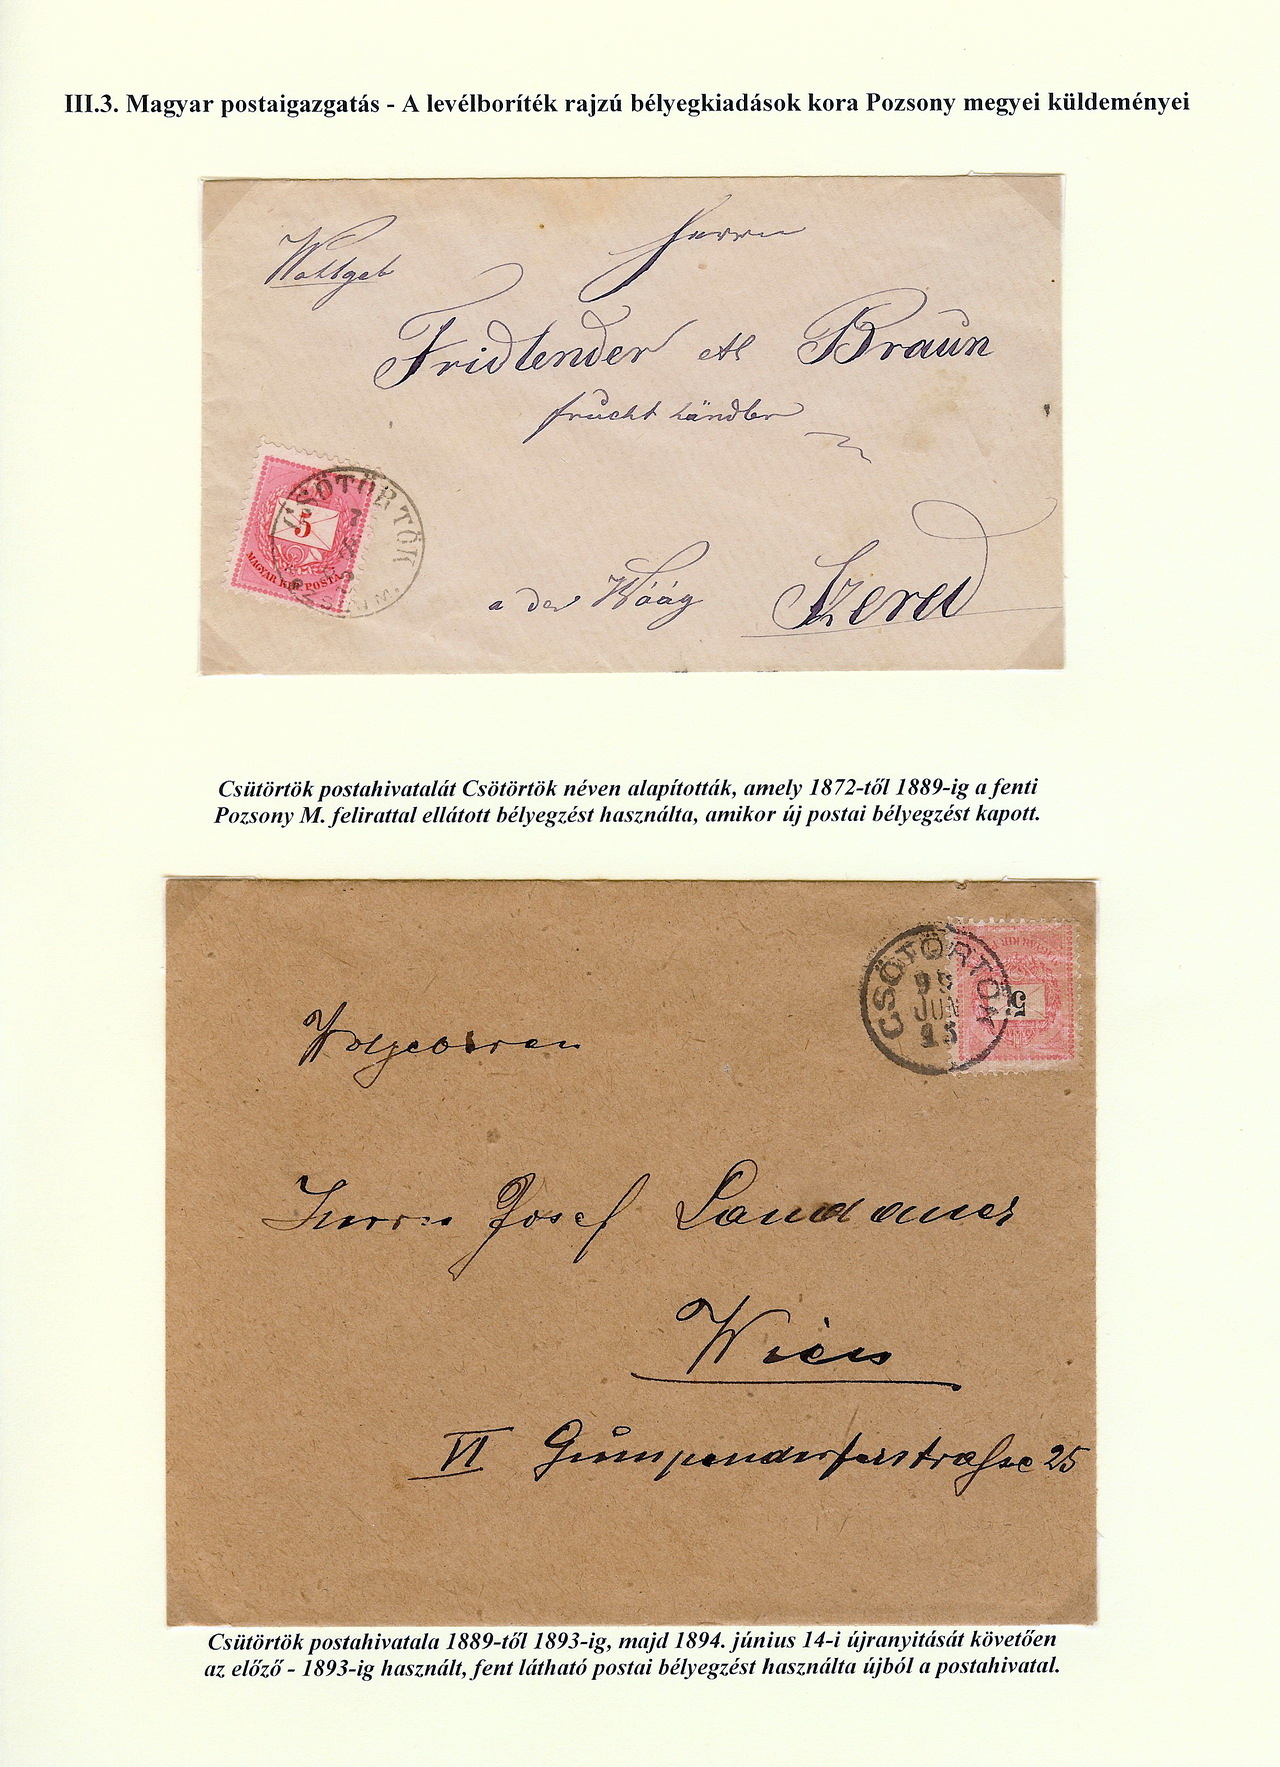 III.3. Magyar postaigazgatás - A levélboríték rajzú bélyegkiadások kora Pozsony megyei küldeményei
Herrn
Fridlender et Braun
frucht händler
CSÖTÖRTÖK
5
MAGYAR KIR. POSTA
a der Wáág Szered
Csütörtök postahivatalát Csötörtök néven alapították, amely 1872-től 1889-ig a fenti
Pozsony M. felirattal ellátott bélyegzést használta, amikor új postai bélyegzést kapott.
CSÖTÖRTÖK
95
JUN
5
Herrn Josef Landauer
Wien
VI Gumpendorferstraße 25
Csütörtök postahivatala 1889-től 1893-ig, majd 1894. június 14-i újranyitását követően
az előző - 1893-ig használt, fent látható postai bélyegzést használta újból a postahivatal.